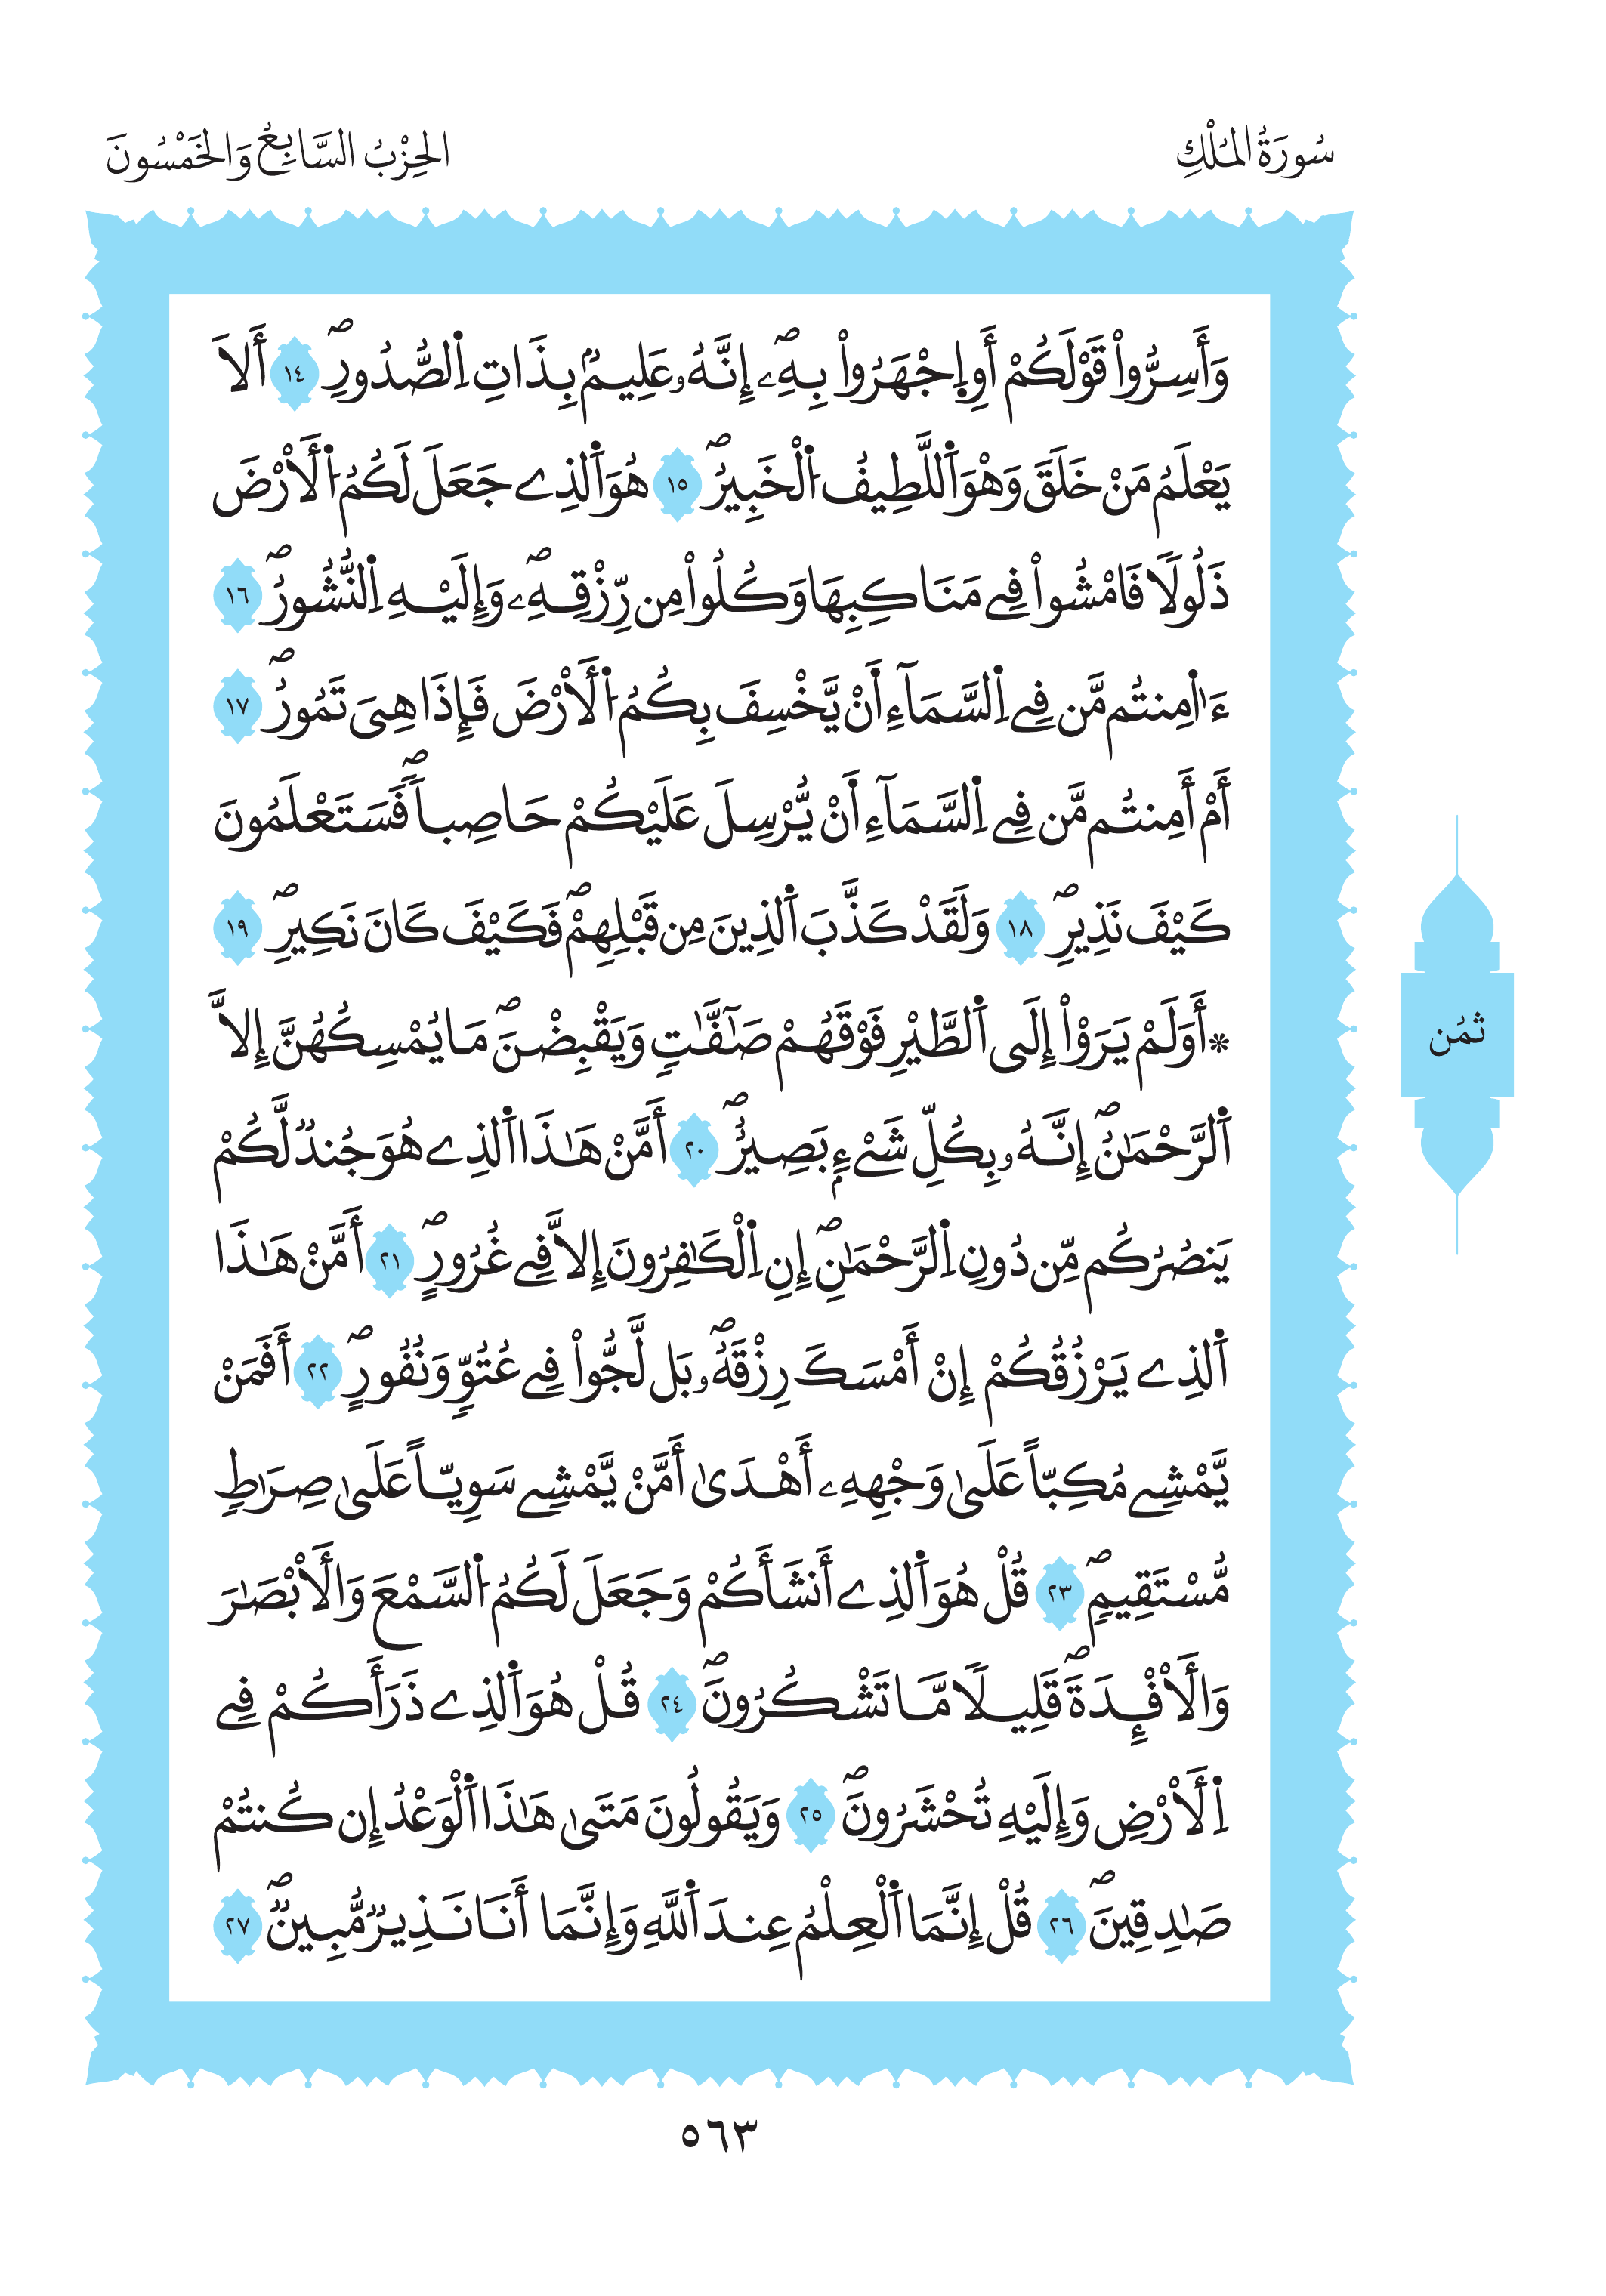 سُورَةُ المُلْكِ
الحِزْبُ السَّابِعُ وَالخَمْسُونَ
وَأَسِرُّواْ قَوْلَكُمْ أَوِ اِ۪جْهَرُواْ بِهِۦٓۖ إِنَّهُۥ عَلِيمُۢ بِذَاتِ اِ۬لصُّدُورِۖ ١٤ أَلَا
يَعْلَمُ مَنْ خَلَقَ وَهْوَ اَ۬للَّطِيفُ اُ۬لْخَبِيرُۖ ١٥ هُوَ اَ۬لذِے جَعَلَ لَكُمُ اُ۬لَارْضَ
ذَلُولاٗ فَامْشُواْ فِے مَنَاكِبِهَا وَكُلُواْ مِن رِّزْقِهِۦۖ وَإِلَيْهِ اِ۬لنُّشُورُۖ ١٦
ءَٰا۬مِنتُم مَّن فِے اِ۬لسَّمَآءِ اَ۬نْ يَّخْسِفَ بِكُمُ اُ۬لَارْضَ فَإِذَا هِيَ تَمُورُۖ ١٧
أَمَ اَمِنتُم مَّن فِے اِ۬لسَّمَآءِ اَ۬نْ يُّرْسِلَ عَلَيْكُمْ حَاصِباٗۖ فَسَتَعْلَمُونَ
كَيْفَ نَذِيرِۖ ١٨ وَلَقَدْ كَذَّبَ اَ۬لذِينَ مِن قَبْلِهِمْۖ فَكَيْفَ كَانَ نَكِيرِۖ ١٩
۞أَوَلَمْ يَرَوْاْ إِلَى اَ۬لطَّيْرِ فَوْقَهُمْ صَٰٓفَّٰتٖ وَيَقْبِضْنَۖ مَا يُمْسِكُهُنَّ إِلَّا
اَ۬لرَّحْمَٰنُۖ إِنَّهُۥ بِكُلِّ شَےْءِۢ بَصِيرٌۖ ٢٠ أَمَّنْ هَٰذَا اَ۬لذِے هُوَ جُندٞ لَّكُمْ
يَنصُرُكُم مِّن دُونِ اِ۬لرَّحْمَٰنِۖ إِنِ اِ۬لْكَٰفِرُونَ إِلَّا فِے غُرُورٍۖ ٢١ أَمَّنْ هَٰذَا
اَ۬لذِے يَرْزُقُكُمْ إِنْ أَمْسَكَ رِزْقَهُۥۖ بَل لَّجُّواْ فِے عُتُوّٖ وَنُفُورٍۖ ٢٢ أَفَمَنْ
يَّمْشِے مُكِبّاً عَلَىٰ وَجْهِهِۦ أَهْدَىٰ أَمَّنْ يَّمْشِے سَوِيّاً عَلَىٰ صِرَٰطٖ
مُّسْتَقِيمٖۖ ٢٣ قُلْ هُوَ اَ۬لذِے أَنشَأَكُمْ وَجَعَلَ لَكُمُ اُ۬لسَّمْعَ وَالَابْصَٰرَ
وَالَافْـِٕدَةَۖ قَلِيلاٗ مَّا تَشْكُرُونَۖ ٢٤ قُلْ هُوَ اَ۬لذِے ذَرَأَكُمْ فِے
اِ۬لَارْضِ وَإِلَيْهِ تُحْشَرُونَۖ ٢٥ وَيَقُولُونَ مَتَىٰ هَٰذَا اَ۬لْوَعْدُ إِن كُنتُمْ
صَٰدِقِينَۖ ٢٦ قُلْ إِنَّمَا اَ۬لْعِلْمُ عِندَ اَ۬للَّهِ وَإِنَّمَا أَنَا نَذِيرٞ مُّبِينٞۖ ٢٧
ثمُن
٥٦٣